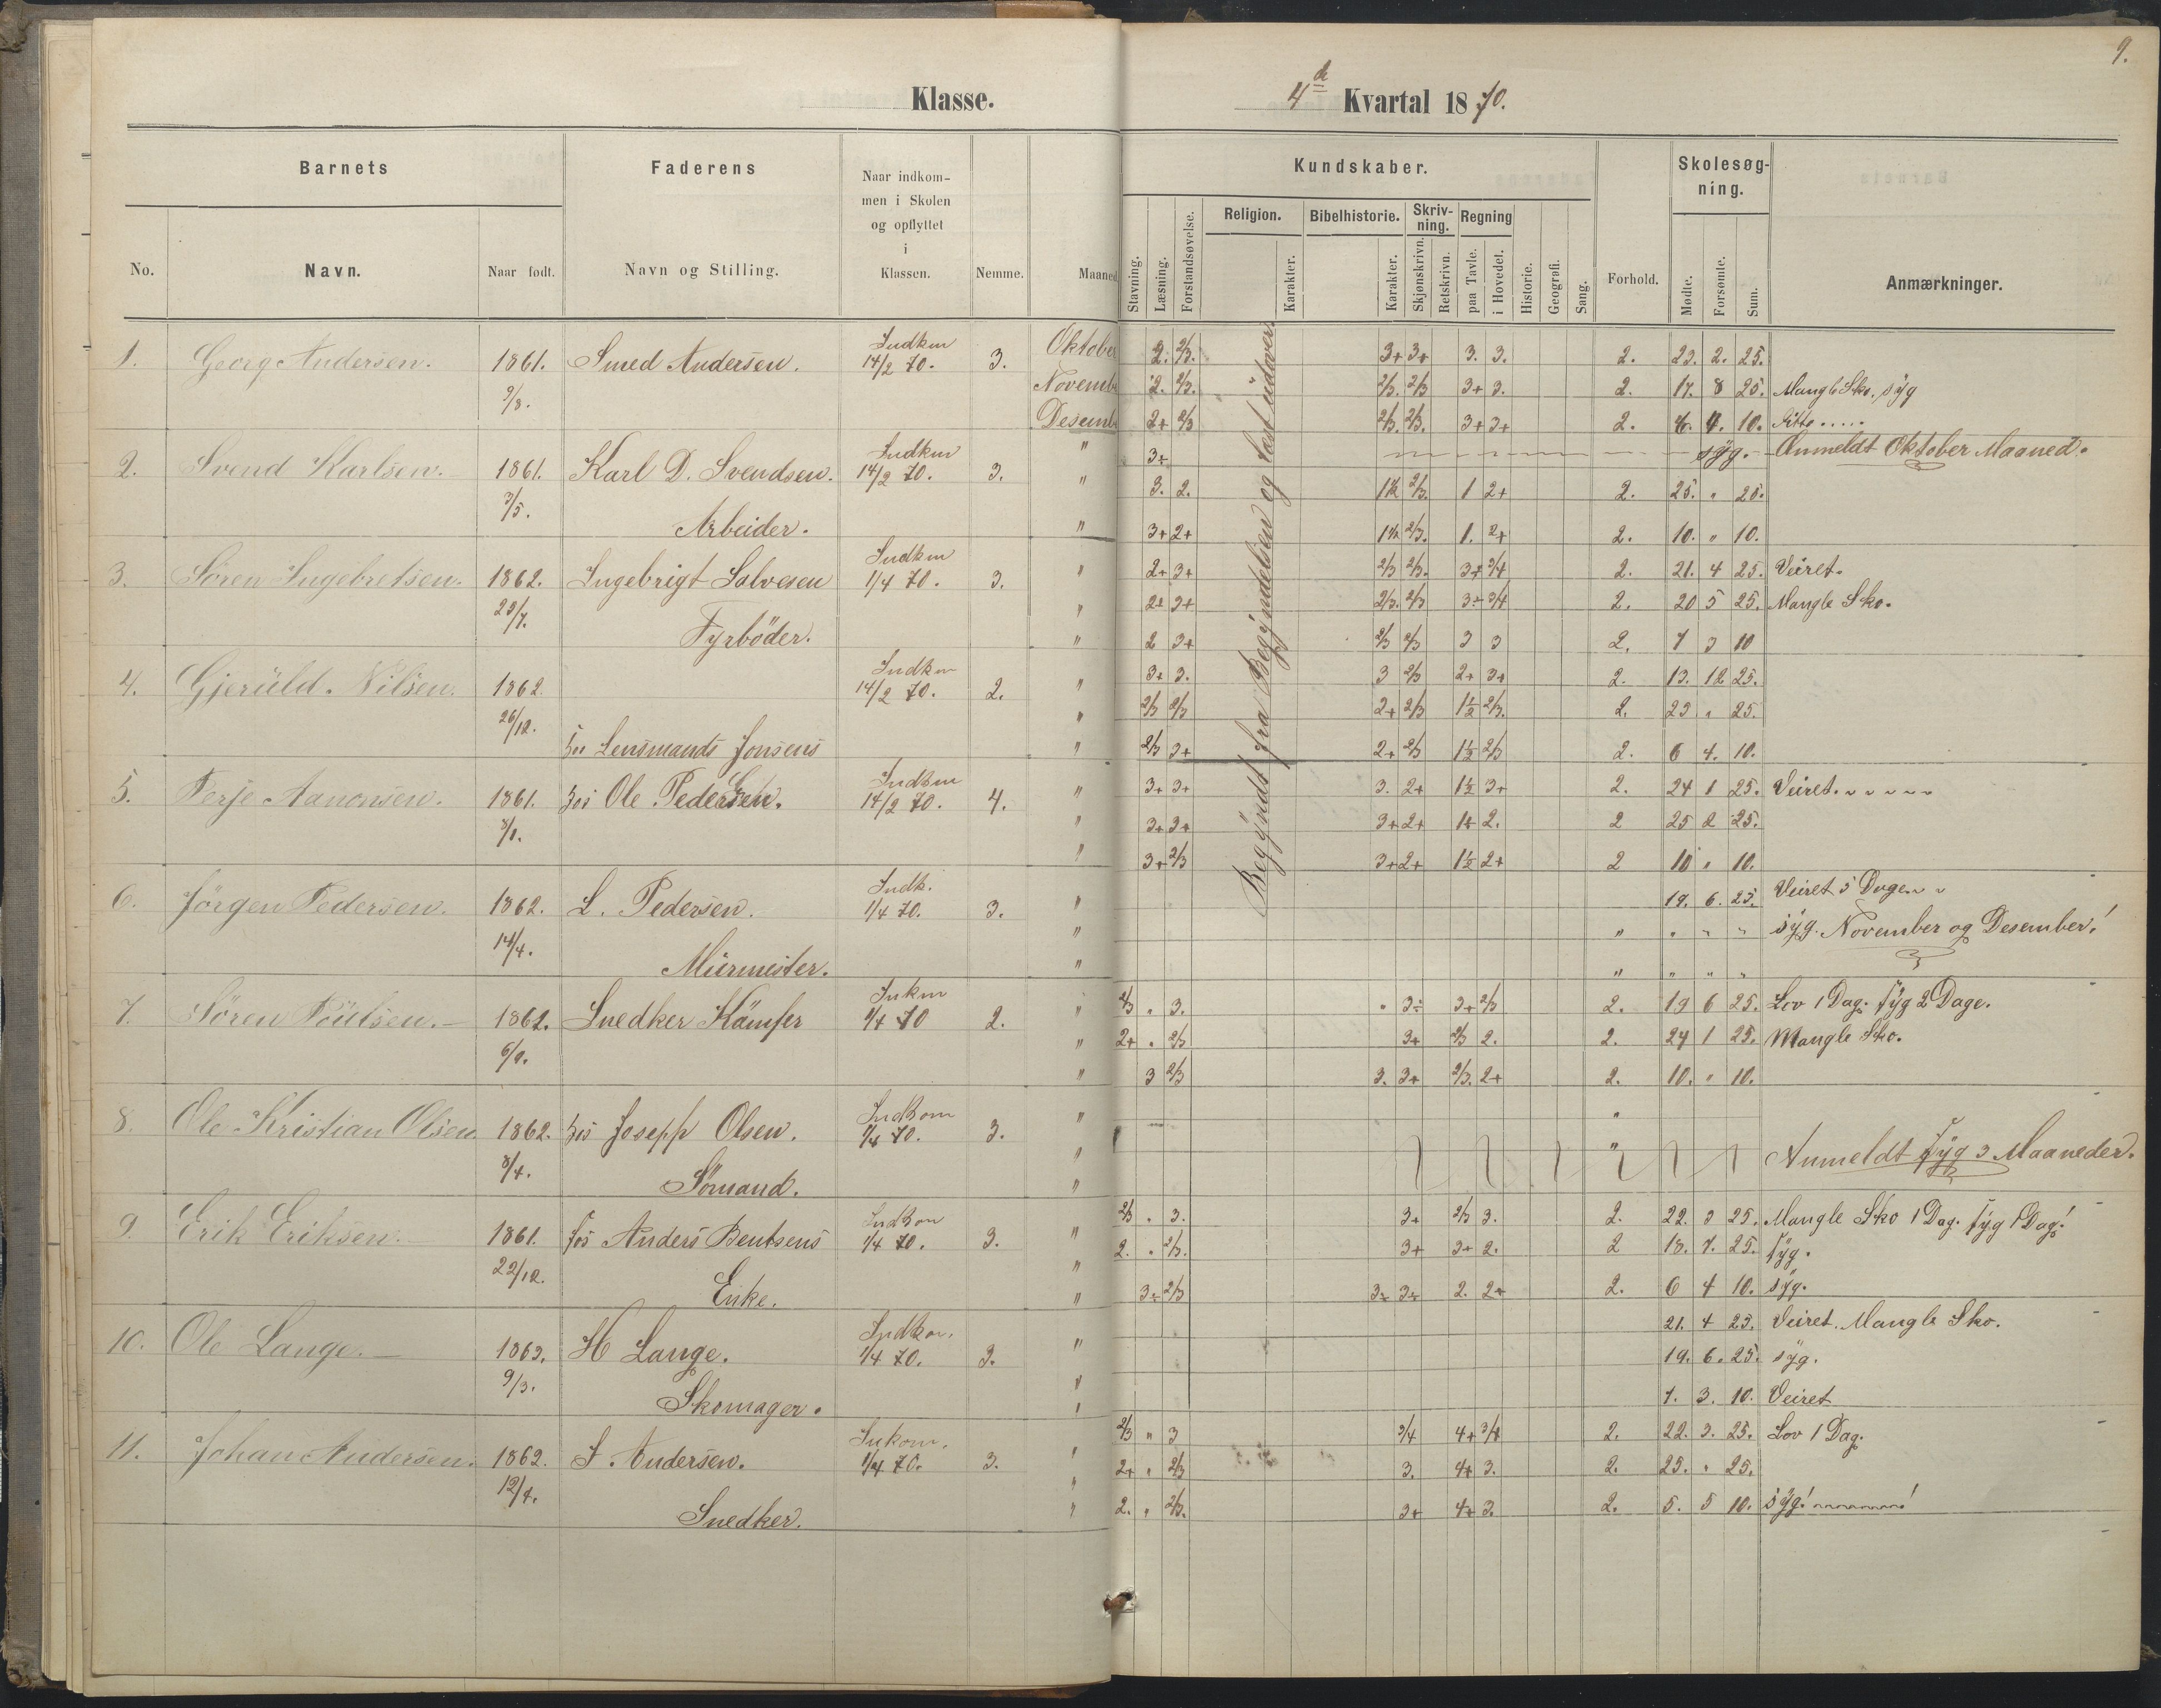 9.
Klasse. 4de Kvartal 1870.
Barnets Faderens Naar indkommen i Skolen og opflyttet i Klassen. Nemme. Maaned Kundskaber. Forhold. Skolesøgning. Anmærkninger.
No. Navn. Naar født. Navn og Stilling. Stavning. Læsning. Forstandsøvelse. Religion. Karakter. Bibelhistorie. Karakter. Skrivning. Skjønskrivn. Retskrivn. Regning paa Tavle. i Hovedet. Historie. Geografi. Sang. Mødte. Forsømte. Sum.
Begÿndt fra Begÿndelsen og læst üdover
1. Georg Andersen. 1861. Smed Andersen. Indkm 14/2 70. 3. Oktober 2. 2/3. 3+ 3+ 3. 3. 2. 23. 2. 25.
9/8. Novemb 2. 2/3. 2/3. 2/3 3+ 3. 2. 17. 8 25. Mangle Sko. sÿg
Desemb 2+ 2/3 2/3. 2/3. 3+ 3+ 2. 6. 4. 10. Ditto.....
2. Svend Karlsen. 1861. Karl D. Svendsen. Indkm 14/2 70. 3. " 3+ sÿg. Anmeldt Oktober Maaned.
3/5. " 3. 2. 1½ 2/3. 1 2+ 2. 25. " 25.
Arbeider. " 3+ 2+ 1½ 2/3. 1. 2+ 2. 10. " 10.
3. Søren Ingebretsen. 1862. Ingebrigt Salvesen Indkm 1/4 70. 3. " 2+ 3+ 2/3 2/3. 3+ 3/4 2. 21. 4 25. Veiret.
23/7. " 2+ 3+ 2/3. 2/3 3÷ 3/4 2. 20 5 25. Mangle Sko.
Fyrböder. " 2 3+ 2/3 2/3 3 3 2. 7 3 10
4. Gjerüld Nilsen. 1862 Indkm 14/2 70. 2. " 3+ 3. 3 2/3 2+ 3+ 2. 13. 12 25.
26/12. " 2/3 2/3 2+ 2/3 1½ 2/3. 2. 23 " 25.
hos Lensmands Jonsens " 2/3 3+ 2+ 2/3 1½ 2/3 2. 6 4. 10.
5. Terje Aanonsen. 1861. hos Ole Pedersen. Indkm 14/2 70. 4. " 3+ 3+ 3. 2+ 1½ 3+ 2. 24 1 25. Veiret.
" 3+ 3+ 3+ 2+ 1+ 2. 2 25 2 25.
" 3+ 2/3 3+ 2+ 1½ 2+ 2 10 " 10.
6. Jörgen Pedersen. 1862. L. Pedersen. Indk. 1/4 70. 3. " 19. 6. 25. Veiret 5 Dage
14/4. " " " " " sÿg. November og Desember!
Mürmester. " " " " "
7. Søren Poülsen. 1862. Snedker Kämfer Inkm 1/4 70 2. " 2/3 " 3. " 3÷ 3+ 2/3 2. 19 6 25. Lov 1 Dag. sÿg 2 Dage.
" 2+ " 2/3 3+ 2/3 2. 2. 24 1 25. Mangle Sko.
" 3 2/3 3. 3+ 2/3. 2+ 2. 10. " 10.
8. Ole Kristian Olsen 1862. hos Josepp Olsen. Indkom 1/4 70. 3. " "
8/4. " " Anmeldt sÿg 3 Maaneder.
Sömand. "
9. Erik Eriksen. 1861. hos Anders Bentsens Indkom 1/4 70. 3. " 2/3 " 3. 3+ 2/3 3. 2. 22. 3 25. Mangle Sko 1 Dag. sÿg 1 Dag!
22/12. " 2. " 2/3. 3+ 3+ 2. 2 18. 7. 25. sÿg.
Enke. " 3÷ 2/3 3÷ 3÷ 2. 2+ 2. 6 4 10. sÿg.
10. Ole Lange. 1863. H Lange. Indkom. 1/4 70. 3. " 21. 4 25. Veiret. Mangle Sko.
9/3. " 19. 6. 25. sÿg.
Skomager. " 7. 3. 10. Veiret
11. Johan Andersen. 1862. S. Andersen. Inkom. 1/4 70. 3. " 2/3 " 3 3/4 4+ 3/4 2. 22. 3. 25. Lov 1 Dag.
12/4. " 2+ " 2/3 3. 4+ 3. 2. 25. " 25.
Snedker. " 2. " 2/3. 3+ 4+ 3. 2. 5. 5 10. sÿg!